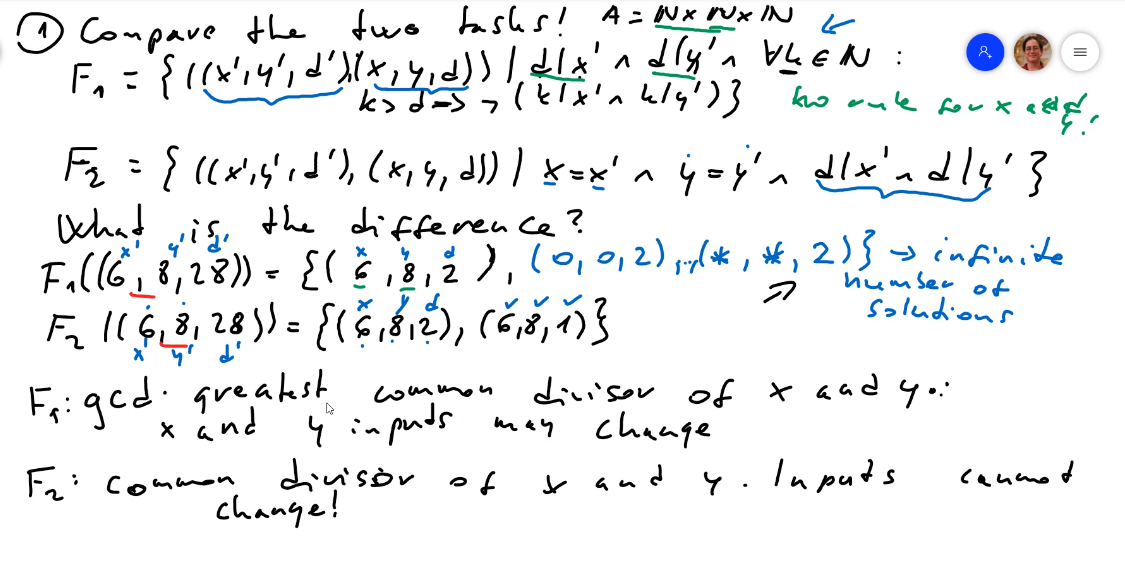 ① Compare the two tasks! A = ℕ × ℕ × ℕ
F₁ = {((x',y',d'),(x,y,d)) | d|x' ∧ d|y' ∧ ∀k ∈ ℕ :
k > d → ¬(k|x' ∧ k|y')} no rule for x and y!
F₂ = {((x',y',d'),(x,y,d)) | x=x' ∧ y=y' ∧ d|x' ∧ d|y'}
What is the difference?
x' y' d' x y d
F₁((6,8,28)) = {(6,8,2), (0,0,2),..,(*,*,2)} → infinite
number of
solutions
x y d
F₂((6,8,28)) = {(6,8,2),(6,8,1)}
x' y' d'
F₁: gcd: greatest common divisor of x and y.
x and y inputs may change
F₂: common divisor of x and y. Inputs cannot
change!